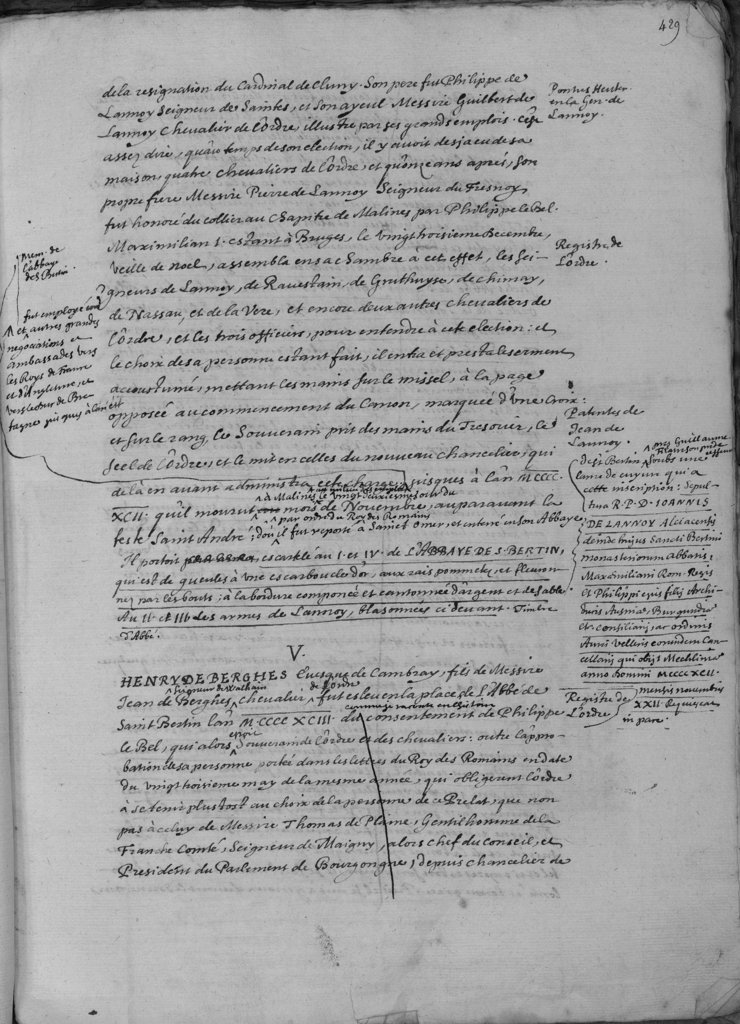 429
de la resignation du Cardinal de Cluny. Son pere fut Philippe de
Lannoy Seigneur de Santes, et son ayeul Messire Guilbert de
Lannoy Chevalier de l'ordre, illustre par ses grands emplois. C'est
assez dire, qu'au temps de son election, il y avoit desja eu de sa
maison, quatre chevaliers de l'ordre, et qu'onze ans apres, son
propre frere Messire Pierre de Lannoy Seigneur du Fresnoy
fut honoré du collier au Chapitre de Malines par Philippe le Bel.
Pontus Heuter
en la Gen. de
Lannoy.
Maximilian I. estant à Bruges, le vingthoisieme Decembre,
veille de noel, assembla en sa chambre à cet effet, les Sei-
gneurs de Lannoy, de Ravestain, de Gruthuyse, de chimay,
de Nassau, et de la Vere, et encore deux autres chevaliers de
l'ordre, et les trois officiers, pour entendre à cette election: et
le choix de sa personne estant fait, il entra et presta le serment
accoustumé, mettant les mains sur le missel, à la page
opposée au commencement du Canon, marquée d'une Croix:
et sur le rang, le Souverain prit des mains du Tresorier, le
seel de l'ordre, et le mit en celles du nouveau chancelier, qui
de là en avant administra cete charge, jusques à l'an MCCCC.
XCII. qu'il mourut à Malines le vingt deuxiesme jour du mois de Novembre, auparavant la
feste Saint André; d'où il fut reporté par ordre du Roy des Romains à Saint Omer, et enterré en son Abbaye.
Registre de
l'ordre.
Mem. de
l'abbaye
de S. Bertin.
fut employé
et autres grandes
negociations et
ambassades vers
les Roys de France
et d'Angleterre, et
vers le Duc de Bre-
tagne
Patentes de
Jean de
Lannoy.
de S. Bertin
Soubs une
lame de cuyvre qui a
cette inscription: Sepul-
tura R. P. D. IOANNIS
DE LANNOY Alclacensis
deinde huius Sancti Bertini
monasteriorum Abbatis,
Maximiliani Rom. Regis
et Philippi eius filij Archi-
ducis Austriae, Burgundiae
et consiliarij, ac ordinis
Aurei Velleris eorundem Can-
cellarij qui obijt Mechliniae
anno Domini MCCCCXCII.
mensis novembris
XXII. Requiescat
in pace.
Il portoit escartelé au I. et IV. de L'ABBAYE DE S. BERTIN,
qui est de gueules à une escarboucle d'or, aux rais pommetez, et fleuron-
nez par les bouts; à la bordure componée et cantonnée d'argent et de sable.
Au II. et III. des armes de Lannoy, blasonnées cy devant. Timbre
d'Abbé.
V.
HENRY DE BERGHES Evesque de Cambray, fils de Messire
Jean de Berghes Seigneur de Walhain chevalier de l'ordre fut esleu en la place de l'Abbé de
Saint Bertin l'an MCCCCXCIII. du consentement de Philippe
le Bel, qui alors estoit Souverain de l'ordre et des chevaliers: outre l'appro-
bation de sa personne portée dans les lettres du Roy des Romains en date
du vingthoisieme may de la mesme année, qui obligerent l'ordre
à se tenir plustost au choix de la personne de ce Prelat, que non
pas à celuy de Messire Thomas de Plaine, Gentilhomme de la
Franche Comté, Seigneur de Maigny, alors chef du conseil, et
President du Parlement de Bourgongne, depuis chancelier de
Registre de
l'ordre